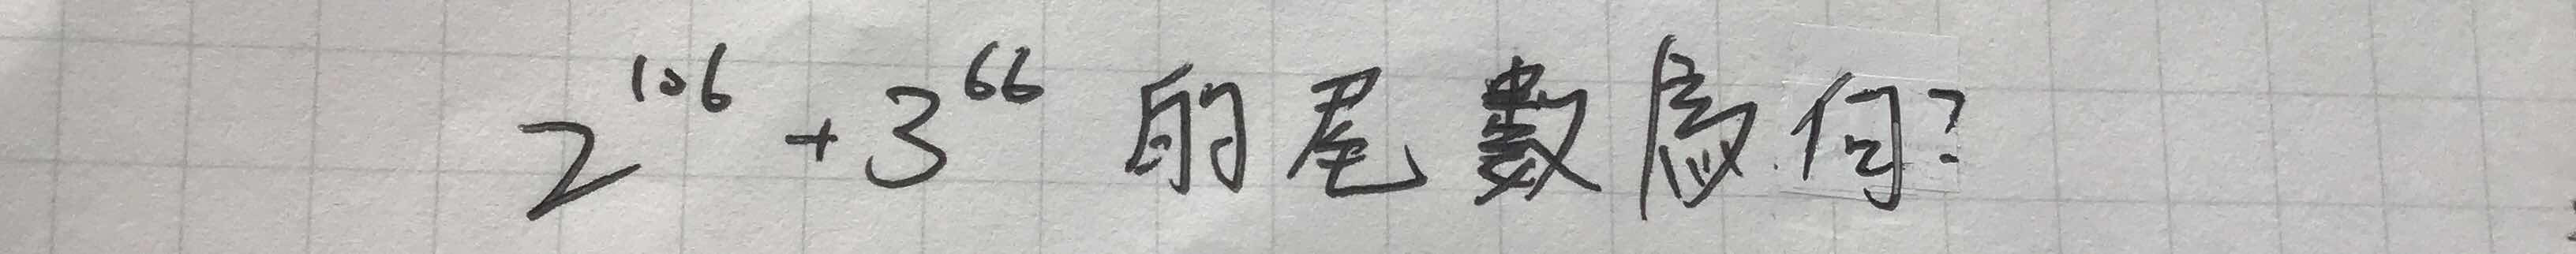 2^106 + 3^66 的尾數為何?